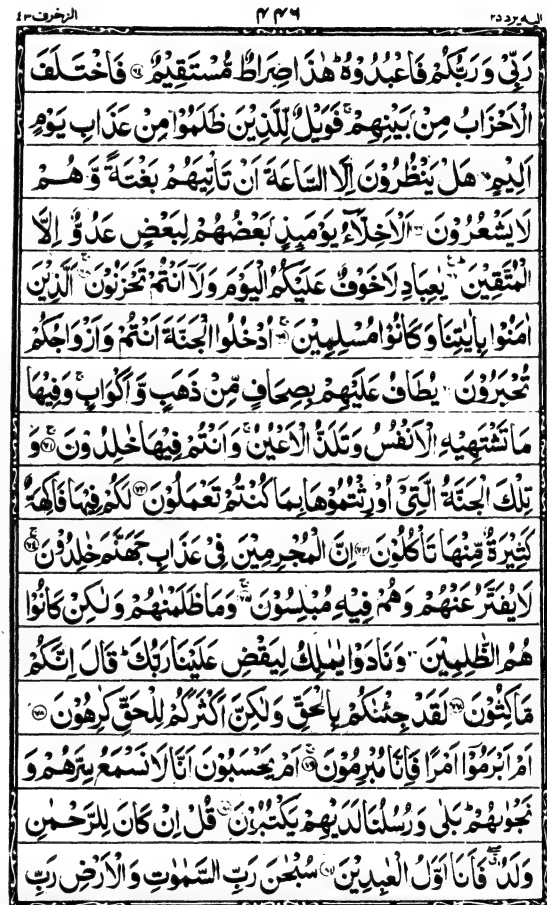 اليه يرد ٢٥ ٤٤٦ الزخرف ٤٣
رَبِّيْ وَرَبُّكُمْ فَاعْبُدُوْهُ ؕ هٰذَا صِرَاطٌ مُّسْتَقِيْمٌ ﴿٦٤﴾ فَاخْتَلَفَ
الْاَحْزَابُ مِنْۢ بَيْنِهِمْ ۚ فَوَيْلٌ لِّلَّذِيْنَ ظَلَمُوْا مِنْ عَذَابِ يَوْمٍ
اَلِيْمٍ ﴿٦٥﴾ هَلْ يَنْظُرُوْنَ اِلَّا السَّاعَةَ اَنْ تَاْتِيَهُمْ بَغْتَةً وَّهُمْ
لَا يَشْعُرُوْنَ ﴿٦٦﴾ اَلْاَخِلَّآءُ يَوْمَئِذٍۭ بَعْضُهُمْ لِبَعْضٍ عَدُوٌّ اِلَّا
الْمُتَّقِيْنَ ﴿٦٧﴾ يٰعِبَادِ لَا خَوْفٌ عَلَيْكُمُ الْيَوْمَ وَلَاۤ اَنْتُمْ تَحْزَنُوْنَ ۚ﴿٦٨﴾ اَلَّذِيْنَ
اٰمَنُوْا بِاٰيٰتِنَا وَكَانُوْا مُسْلِمِيْنَ ۚ﴿٦٩﴾ اُدْخُلُوا الْجَنَّةَ اَنْتُمْ وَاَزْوَاجُكُمْ
تُحْبَرُوْنَ ﴿٧٠﴾ يُطَافُ عَلَيْهِمْ بِصِحَافٍ مِّنْ ذَهَبٍ وَّاَكْوَابٍ ۚ وَفِيْهَا
مَا تَشْتَهِيْهِ الْاَنْفُسُ وَتَلَذُّ الْاَعْيُنُ ۚ وَاَنْتُمْ فِيْهَا خٰلِدُوْنَ ۚ﴿٧١﴾ وَ
تِلْكَ الْجَنَّةُ الَّتِيْۤ اُوْرِثْتُمُوْهَا بِمَا كُنْتُمْ تَعْمَلُوْنَ ﴿٧٢﴾ لَكُمْ فِيْهَا فَاكِهَةٌ
كَثِيْرَةٌ مِّنْهَا تَاْكُلُوْنَ ﴿٧٣﴾ اِنَّ الْمُجْرِمِيْنَ فِيْ عَذَابِ جَهَنَّمَ خٰلِدُوْنَ ۚ﴿٧٤﴾
لَا يُفَتَّرُ عَنْهُمْ وَهُمْ فِيْهِ مُبْلِسُوْنَ ۚ﴿٧٥﴾ وَمَا ظَلَمْنٰهُمْ وَلٰكِنْ كَانُوْا
هُمُ الظّٰلِمِيْنَ ﴿٧٦﴾ وَنَادَوْا يٰمٰلِكُ لِيَقْضِ عَلَيْنَا رَبُّكَ ؕ قَالَ اِنَّكُمْ
مّٰكِثُوْنَ ﴿٧٧﴾ لَقَدْ جِئْنٰكُمْ بِالْحَقِّ وَلٰكِنَّ اَكْثَرَكُمْ لِلْحَقِّ كٰرِهُوْنَ ﴿٧٨﴾
اَمْ اَبْرَمُوْۤا اَمْرًا فَاِنَّا مُبْرِمُوْنَ ۚ﴿٧٩﴾ اَمْ يَحْسَبُوْنَ اَنَّا لَا نَسْمَعُ سِرَّهُمْ وَ
نَجْوٰىهُمْ ؕ بَلٰى وَرُسُلُنَا لَدَيْهِمْ يَكْتُبُوْنَ ﴿٨٠﴾ قُلْ اِنْ كَانَ لِلرَّحْمٰنِ
وَلَدٌ ۖ فَاَنَا اَوَّلُ الْعٰبِدِيْنَ ﴿٨١﴾ سُبْحٰنَ رَبِّ السَّمٰوٰتِ وَالْاَرْضِ رَبِّ